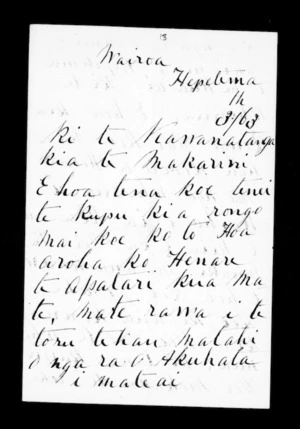 Wairoa
Hepetema
1th
3/68
Ki te Kawanatanga
kia te Makarini
E hoa tena koe tenei
te kupu kia rongo
mai koe ko to Hoa
aroha ko Henare
te apatari kua ma
te, mate rawa i te
toru tekau matahi
o nga ra o Akuhata
i mate ai